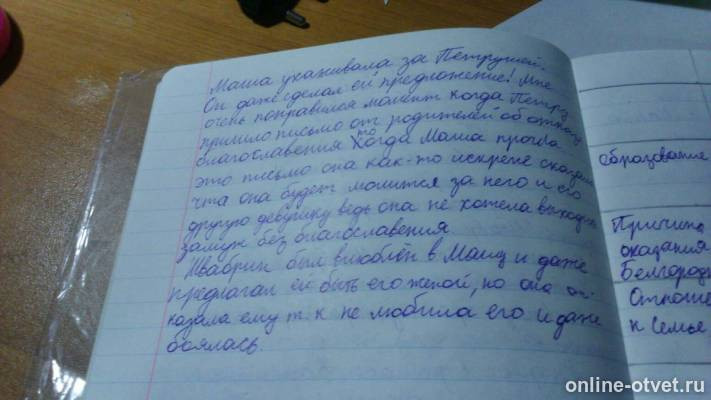 Маша ухаживала за Петрушей.
Он даже сделал ей предложение! Мне
очень понравился момент когда Петру
пришло письмо от родителей об отказу
благославения то Когда Маша прочла
это письмо она как-то искрене сказала
что она будет молится за него и его
другую девушку ведь она не хотела выходить
замуж без благославения
Швабрин был влюблён в Машу и даже
предлагал ей быть его женой, но она от-
казала ему т к не любила его и даже
боялась.
образование
Причина
оказания
Белгородс
Отноше
к семье
online-otvet.ru